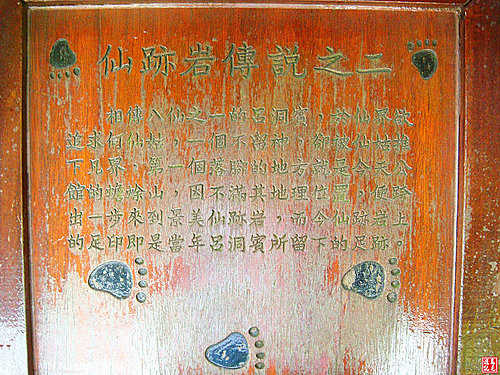 仙跡岩傳說之二
相傳八仙之一的呂洞賓，於仙界欲
追求何仙姑，一個不留神，卻被仙姑推
下凡界，第一個落腳的地方就是今天公
館的蟾蜍山，因不滿其地理位置，便跨
出一步來到景美仙跡岩，而今仙跡岩上
的足印即是當年呂洞賓所留下的足跡。